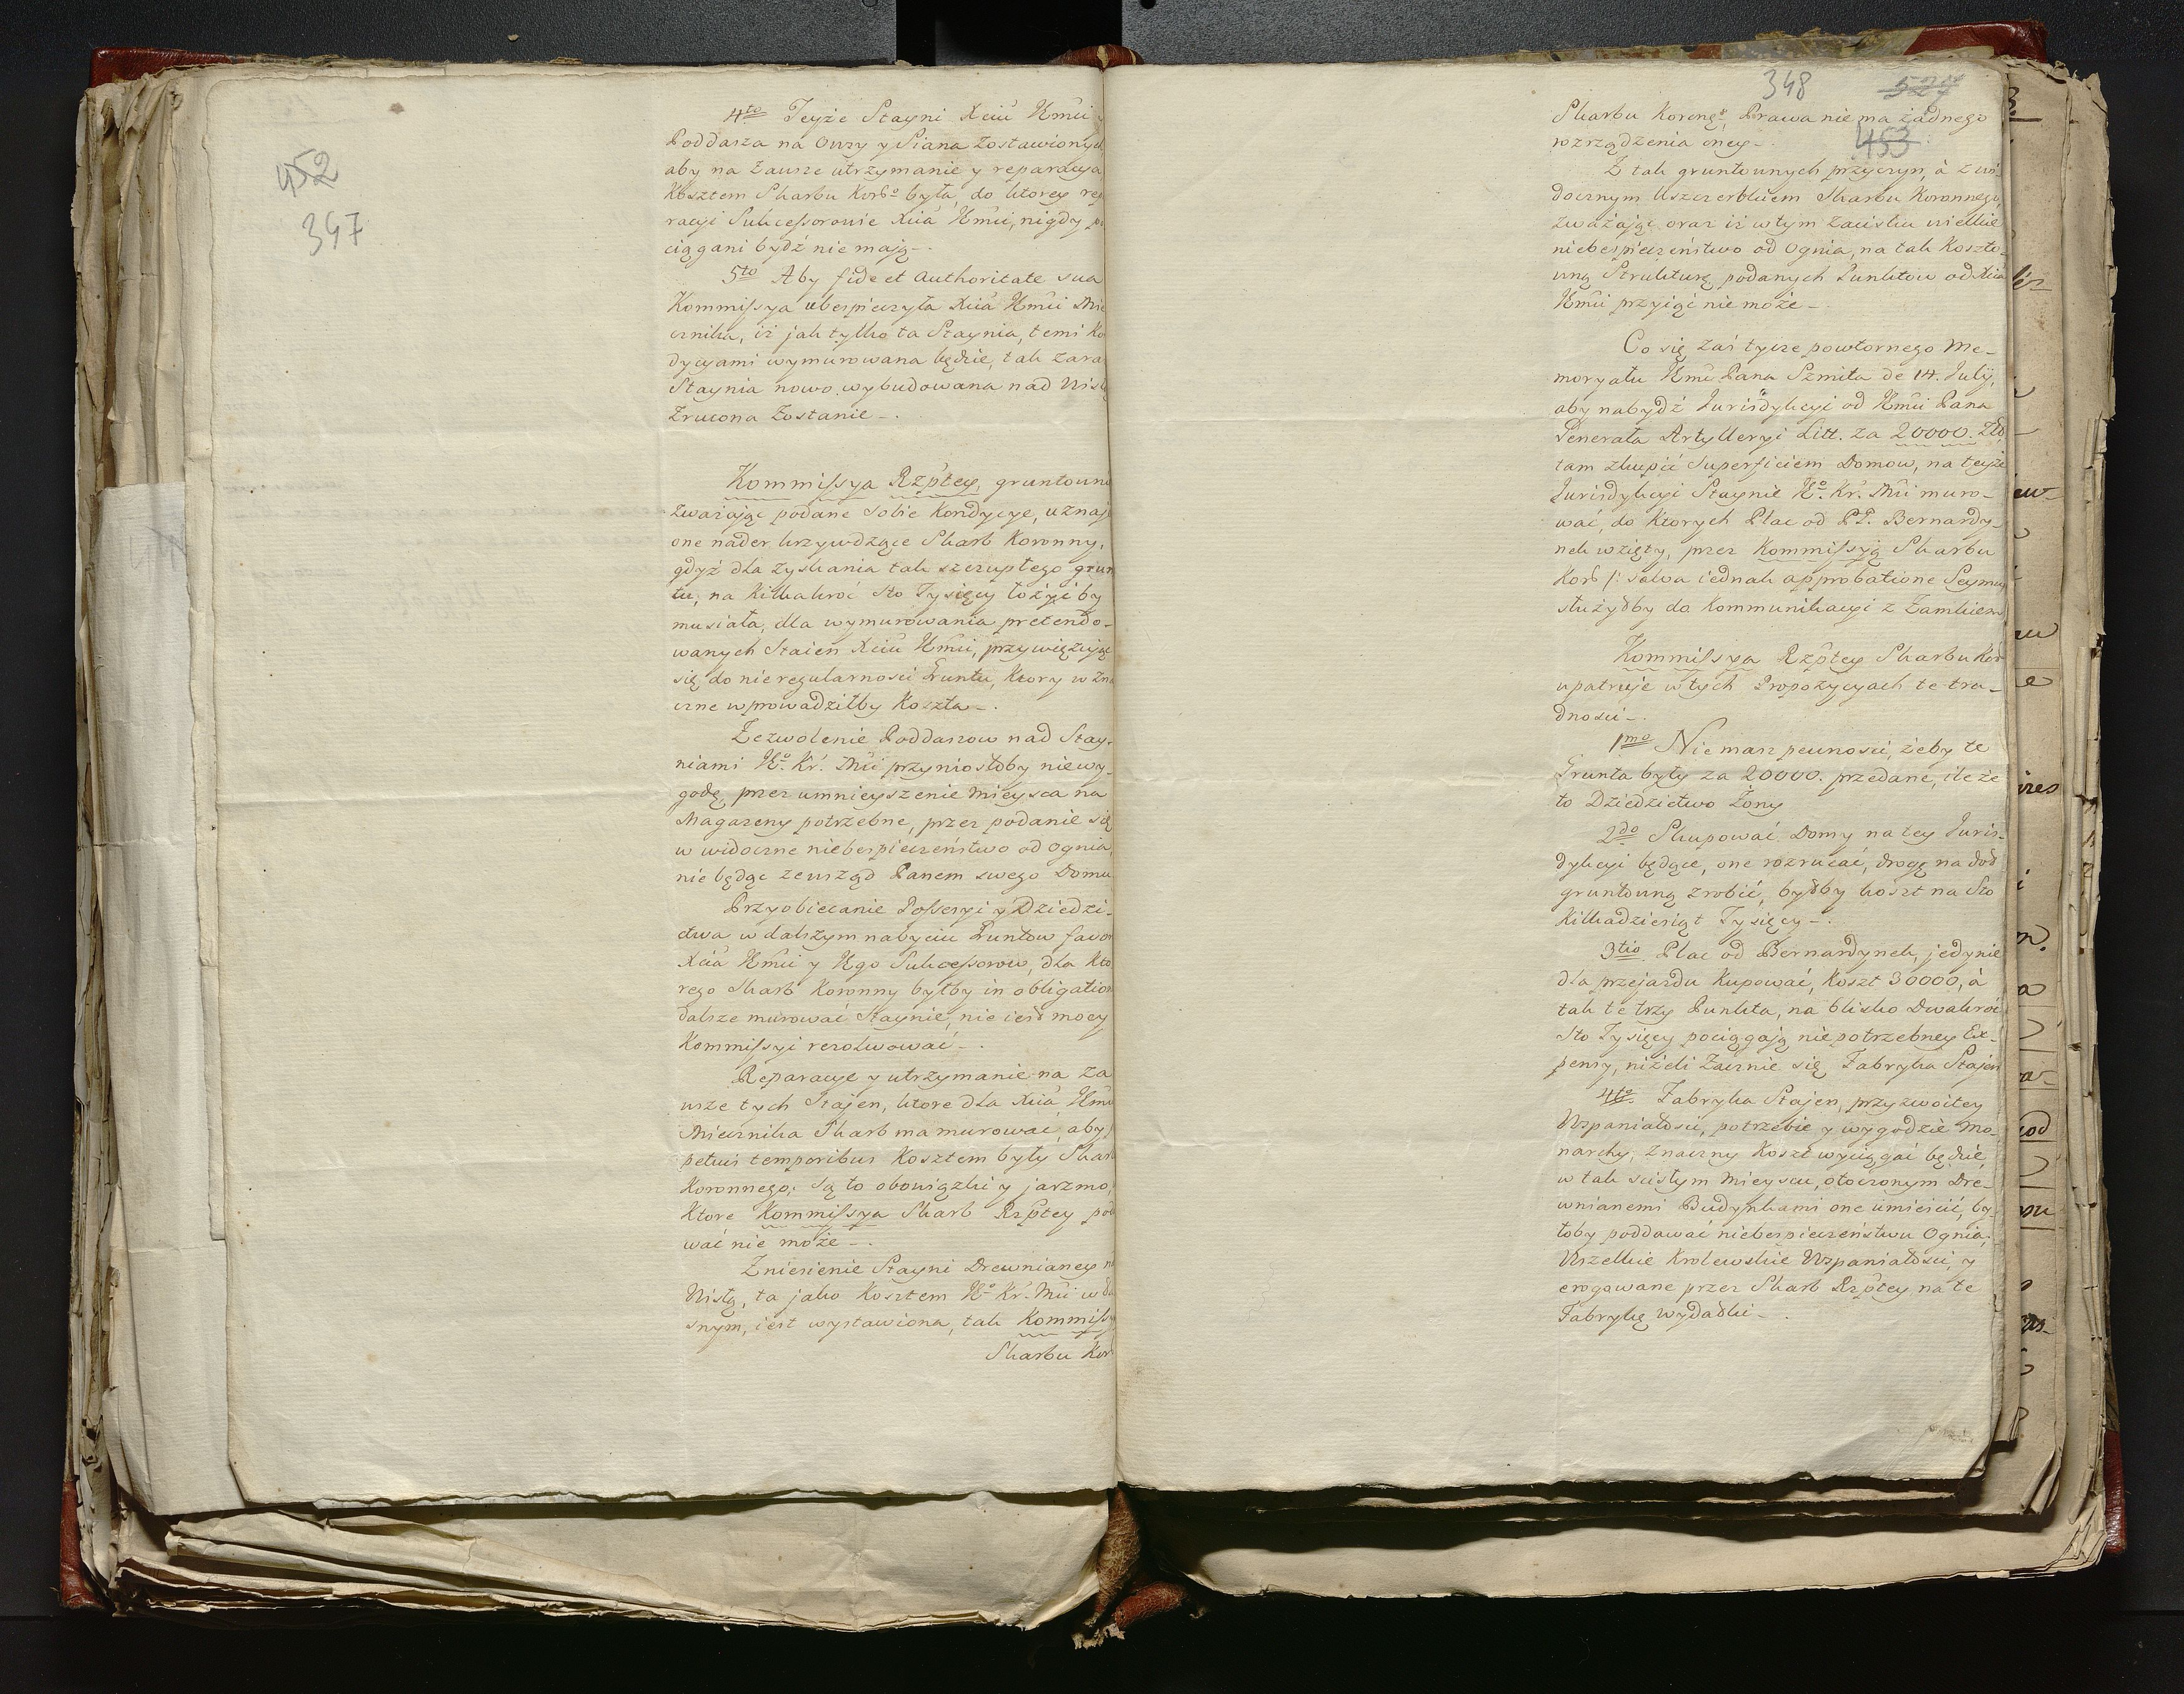 452
347
4to Teyże Stayni Xcia Jmci
Poddasza na Owsy y Siana zostawionych
aby na zawsze utrzymanie y reparacya
Kosztem Skarbu Kor° była, do ktorey
racyi Sukcessorowie Xcia Jmci, nigdy
ciągani bydź nie mają.
5to Aby fide et Authoritate sua
Kommissya ubespieczyła Xcia Jmci Mie
cznika, iż jak tylko ta Staynia, temi Ko
dycyami wymurowana będzie, tak zara
Staynia nowo wybudowana nad Wisłą
Zrucona Zostanie.
Kommissya Rzptey, gruntowni
zważając podane sobie Kondycye, uznaje
one nader krzywdzące Skarb Koronny,
gdyż dla zyskania tak szczupłego grun
tu, na Kilkakroć Sto Tysięcy łożyć by
musiała, dla wymurowania pretendo-
wanych Staien Xciu Jmci, przywięzując
się do nieregularności Gruntu, Ktory w zna
czne wprowadziłby Koszta.
Zezwolenie Poddaszow nad Stay-
niami J° Kr. Mci przyniosłoby niewy-
godę, przez umnieyszenie Mieysca na
Magazeny potrzebne, przez podanie się
w widoczne niebespieczeństwo od Ognia,
nie będąc zewsząd Panem swego Domu
Przyobiecanie Possessyi y Dziedzi-
ctwa w dalszym nabyciu Gruntow favor
Xcia Jmci y Jego Sukcessorow, dla Kto
rego Skarb Koronny byłby in obligation
dalsze murować Staynie, nie iest mocy
Kommissyi rezolwować.
Reparacye y utrzymanie na za
wsze tych Stajen, ktore dla Xcia Jmci
Miecznika Skarb ma murować, aby
petuis temporibus Kosztem były Skar
Koronnego; Są to obowiązki y jarzmo,
Ktore Kommissya Skarb Rzptey pod
wać nie może.
Zniesienie Stayni Drewnianey n
Wisłą, ta jako Kosztem J° Kr. Mci wła
snym, iest wystawiona, tak Kommissy
Skarbu Kor
348
527
453
Skarbu Koronę°, Prawa nie ma żadnego
rozrządzenia oney.
Z tak gruntownych przyczyn, à z wi-
docznym Uszczerbkiem Skarbu Koronnego,
zważając oraz iż w tym zacisku wielkie
niebespieczeństwo od Ognia, na tak Kosztow-
wną Strukturę, podanych Punktow od Xcia
Jmci przyiąć nie może.
Co się zaś tycze powtornego Me-
moryału Jmć Pana Szmita de 14. Julij,
aby nabydź Jurisdykcyi od Jmci Pana
Generała Artylleryi Litt. za 20000. Zło
tam skupić Superficiem Domow, na teyże
Jurisdykcyi Staynie J° Kr. Mci muro-
wać, do Ktorych Plac od PP. Bernardy-
nek wzięty, przez Kommissyą Skarbu
Kor° /: salva iednak approbatione Seymu
służyłby do Kommunikacyi z Zamkiem
Kommissya Rzptey Skarbu Kor
upatruje w tych Propozycyach te tru-
dności.
1mo Nie masz pewności, żeby te
Grunta były za 20000. przedane, ile że
to Dziedzictwo Żony
2do Skupować Domy na tey Juris-
dykcyi będące, one rozrucać, drogę na doł
gruntowną zrobić, byłby koszt na Sto
Kilkadziesiąt Tysięcy.
3tio Plac od Bernardynek, jedynie
dla przejazdu Kupować, Koszt 30000, à
tak te trzy Punkta, na blisko Dwakroć
Sto Tysięcy pociągają niepotrzebney Ex-
pensy, niżeli Zacznie się Fabryka Stajen
4to. Fabryka Stajen, przyzwoitey
Wspaniałości, potrzebie y wygodzie Mo-
narchy, Znaczny Koszt wyciągać będzie,
w tak ścisłym Mieyscu, otoczonym Dre-
wnianemi Budynkami one umieścić, by-
łoby poddawać niebespieczeństwu Ognia,
Wszelkie Krolewskie Wspaniałości, y
erogowane przez Skarb Rzptey na te
Fabrykę wydatki.